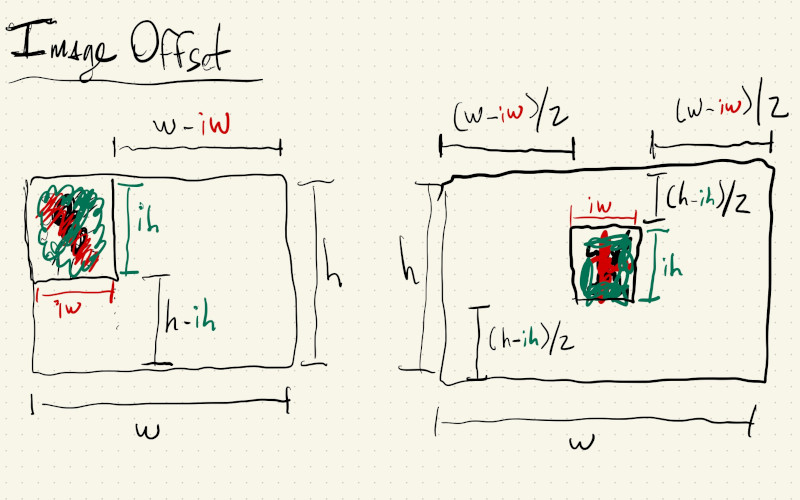 Image Offset
w-iw
ih
iw
h-ih
h
w
(w-iw)/2
(w-iw)/2
(h-ih)/2
iw
ih
h
(h-ih)/2
w